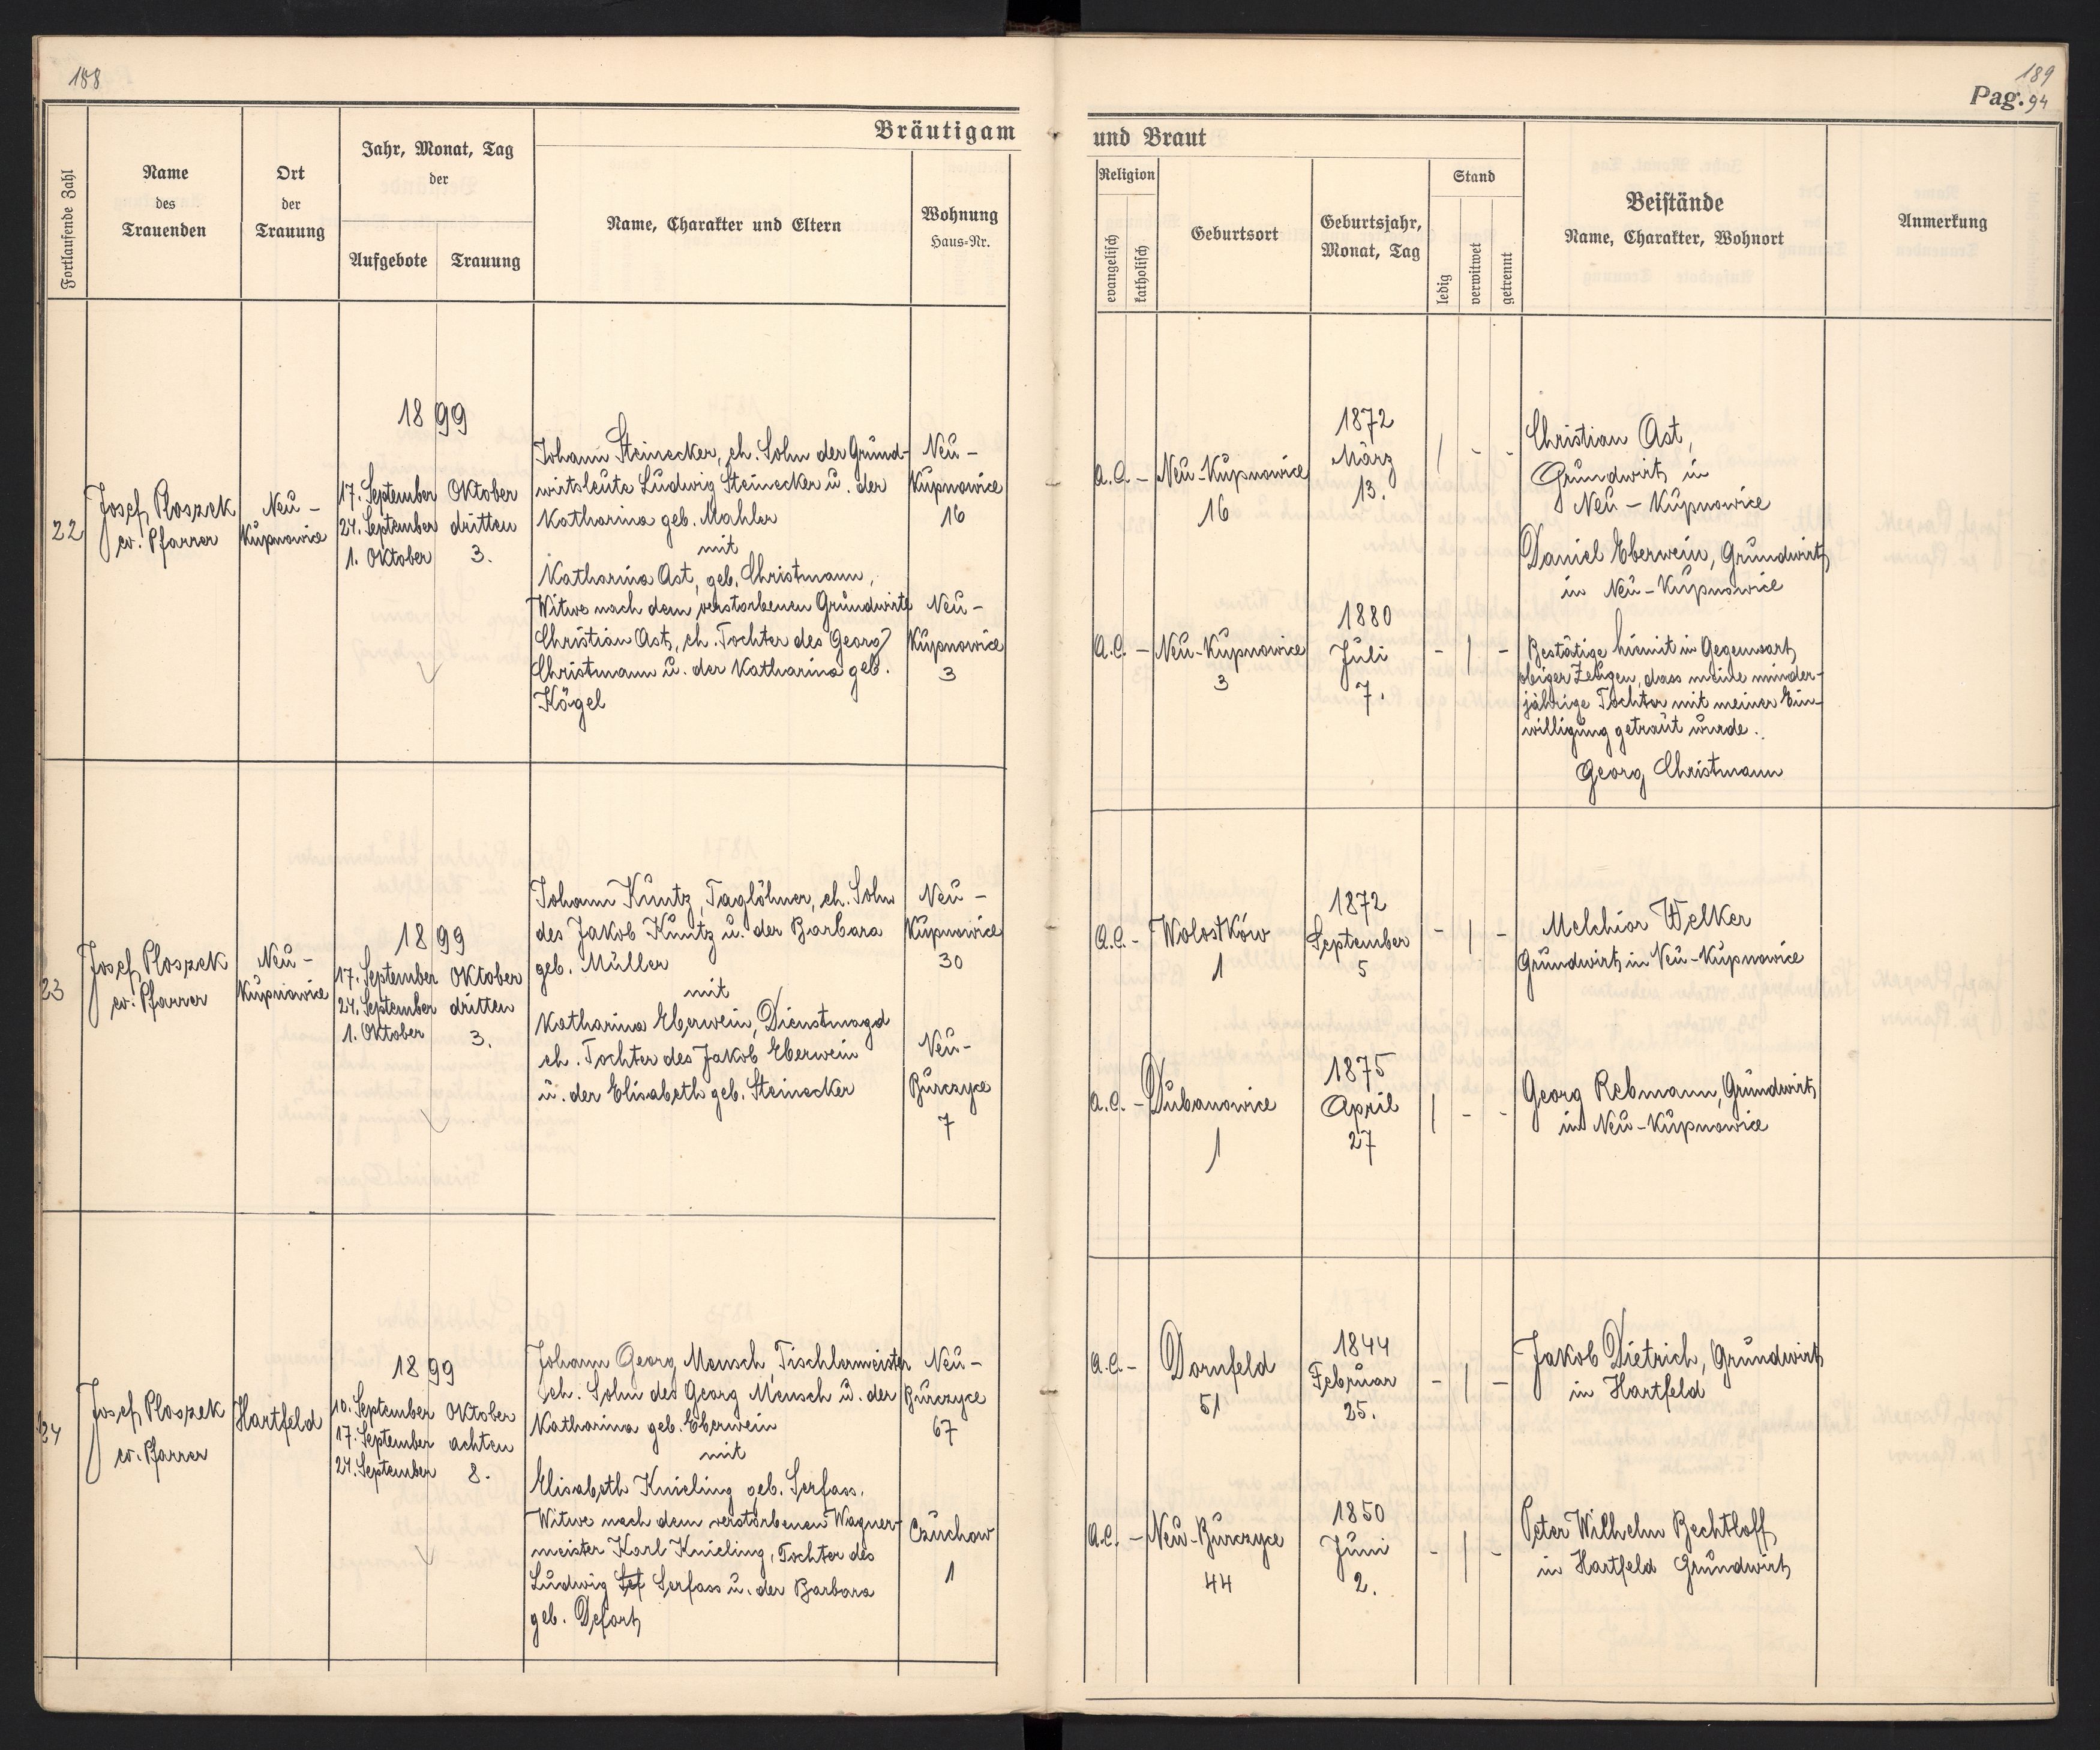 188
189
Pag. 94
Bräutigam
und Braut
Fortlaufende Zahl
Name
des
Trauenden
Ort
der
Trauung
Jahr, Monat, Tag
der
Aufgebote
Trauung
Name, Charakter und Eltern
Wohnung
Haus-Nr.
Religion
evangelisch
katholisch
Geburtsort
Geburtsjahr,
Monat, Tag
Stand
ledig
verwitwet
getrennt
Beistände
Name, Charakter, Wohnort
Anmerkung
22
Josef Ploszek
ev. Pfarrer
Neu-
Kupnowice
1899
17. September
24. September
1. Oktober
Oktober
dritten
3.
Johann Steinecker, eh. Sohn der Grund-
wirtsleute Ludwig Steinecker u. der
Katharina geb. Mahler
mit
Katharina Ast, geb. Christmann,
Witwe nach dem verstorbenen Grundwirte
Christian Ast, eh. Tochter des Georg
Christmann u. der Katharina geb.
Kögel
Neu-
Kupnowice
16
Neu-
Kupnowice
3
A.C. -
Neu-Kupnowice
16
1872
März
13.
/ - -
A.C. -
Neu-Kupnowice
3
1880
Juli
7.
- / -
Christian Ast,
Grundwirt in
Neu-Kupnowice
Daniel Eberwein, Grundwirt
in Neu-Kupnowice
Bestätige hiemit in Gegenwart
obiger Zeugen, dass meine minder-
jährige Tochter mit meiner Ein-
willigung getraut wurde.
Georg Christmann
23
Josef Ploszek
ev. Pfarrer
Neu-
Kupnowice
1899
17. September
24. September
1. Oktober
Oktober
dritten
3.
Johann Kuntz, Taglöhner, eh. Sohn
des Jakob Kuntz u. der Barbara
geb. Müller
mit
Katharina Eberwein, Dienstmagd
eh. Tochter des Jakob Eberwein
u. der Elisabeth geb. Steinecker
Neu-
Kupnowice
30
Neu-
Burczyce
7
A.C. -
Wolostków
1
1872
September
5
- / -
A.C. -
Dubanowice
1
1875
April
27
/ - -
Melchior Welker
Grundwirt in Neu-Kupnowice
Georg Rebmann, Grundwirt
in Neu-Kupnowice
24
Josef Ploszek
ev. Pfarrer
Hartfeld
1899
10. September
17. September
24. September
Oktober
achten
8.
Johann Georg Mensch, Tischlermeister
eh. Sohn des Georg Mensch u. der
Katharina geb. Eberwein
mit
Elisabeth Knieling geb. Serfass.
Witwe nach dem verstorbenen Wagner-
meister Karl Knieling, Tochter des
Ludwig Sef Serfass u. der Barbara
geb. Defort
Neu-
Burczyce
67
Czuchow
1
A.C. -
Dornfeld
51
1844
Februar
25.
- / -
A.C. -
Neu-Burczyce
44
1850
Juni
2.
- / -
Jakob Dietrich, Grundwirt
in Hartfeld
Peter Wilhelm Bechtloff
in Hartfeld Grundwirt